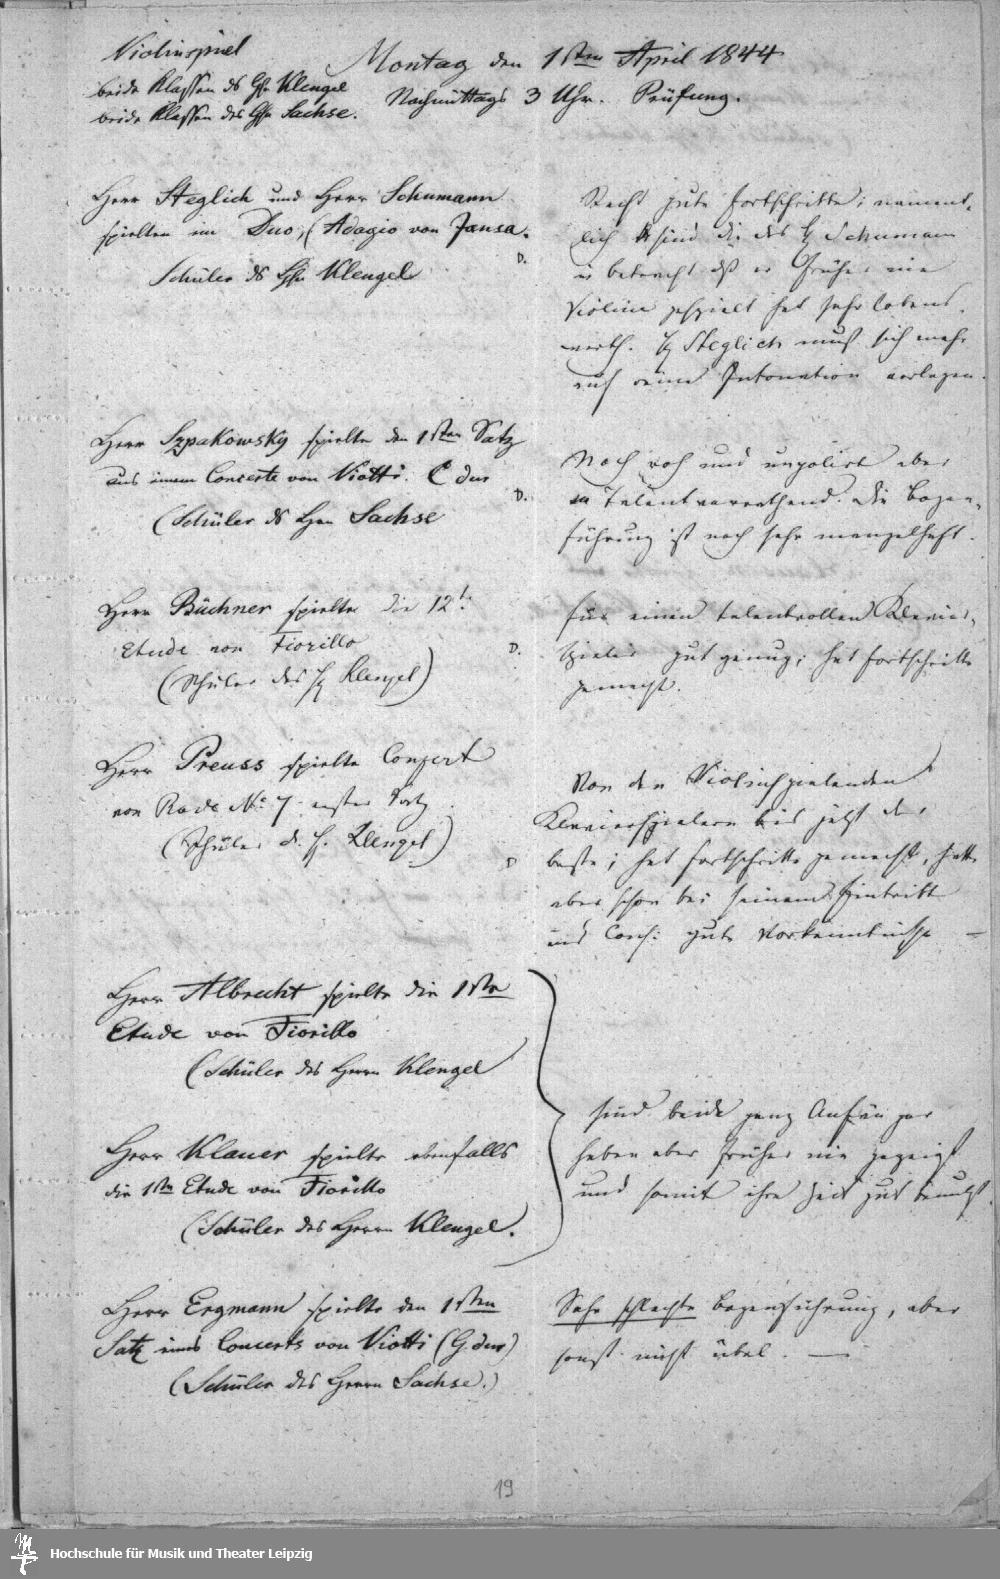 Violinspiel
Montag den 1sten April 1844
beide Klassen ds Hn Klengel
Nachmittags 3 Uhr. Prüfung.
beide Klassen des Hn Sachse.
Herr Steglich und Herr Schumann
spielten im Duo, (Adagio von Jansa.
Schüler ds Hn Klengel
D.
Recht gute Fortschritte; nament-
lich sind die des H Schumann
in betracht dß er früher nie
Violine gespielt hat sehr lobens-
werth. H Steglich muß sich mehr
auf reine Intonation verlegen.
Herr Szpakowsky spielte den 1sten Satz
aus einem Concerte von Viotti. C dur
(Schüler ds Hrn Sachse
D.
Noch roh und unpolirt aber
Talentverrathend. Die Bogen-
führung ist noch sehr mangelhaft.
Herr Büchner spielte die 12te
Etude von Fiorillo
(Schüler des H Klengel)
D.
für einen talentvollen Klavier-
spieler gut genug; hat fortschritte
gemacht.
Herr Preuss spielte Conzert
von Rode No 7. erster Satz.
(Schüler d. H. Klengel)
D
Von den Violinspielenden
Klavierspielern bis jetzt der
beste; hat fortschritte gemacht, hatte
aber schon bei seinem Eintritt
ins Cons: gute Vorkenntnisse —
Herr Albrecht spielte die 1ste
Etude von Fiorillo
(Schüler des Herrn Klengel
Herr Klauer spielte ebenfalls
die 1ste Etude von Fiorillo
(Schüler des Herrn Klengel.
sind beide ganz Anfänger
haben aber früher nie gegeigt
und somit ihre Zeit gut benutzt.
Herr Ergmann spielte den 1sten
Satz eines Concerts von Viotti (G dur)
(Schüler des Herrn Sachse.)
Sehr schlechte Bogenführung, aber
sonst nicht übel. —
19
Hochschule für Musik und Theater Leipzig